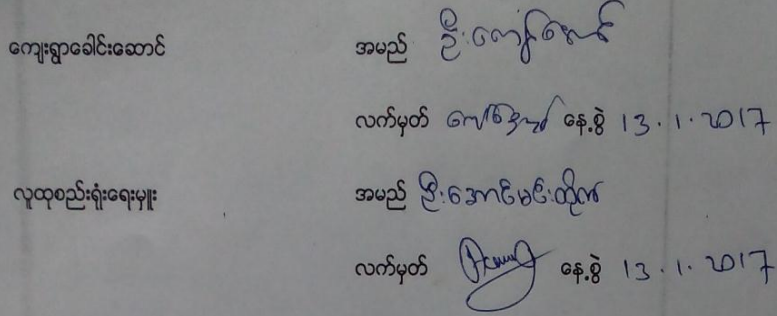 ကျေးရွာခေါင်းဆောင် အမည် ဦး
လက်မှတ် နေ့စွဲ 13.1.2017
လူထုစည်းရုံးရေးမှူး အမည် ဦးအောင်မင်းထိုက်
လက်မှတ် နေ့စွဲ 13.1.2017